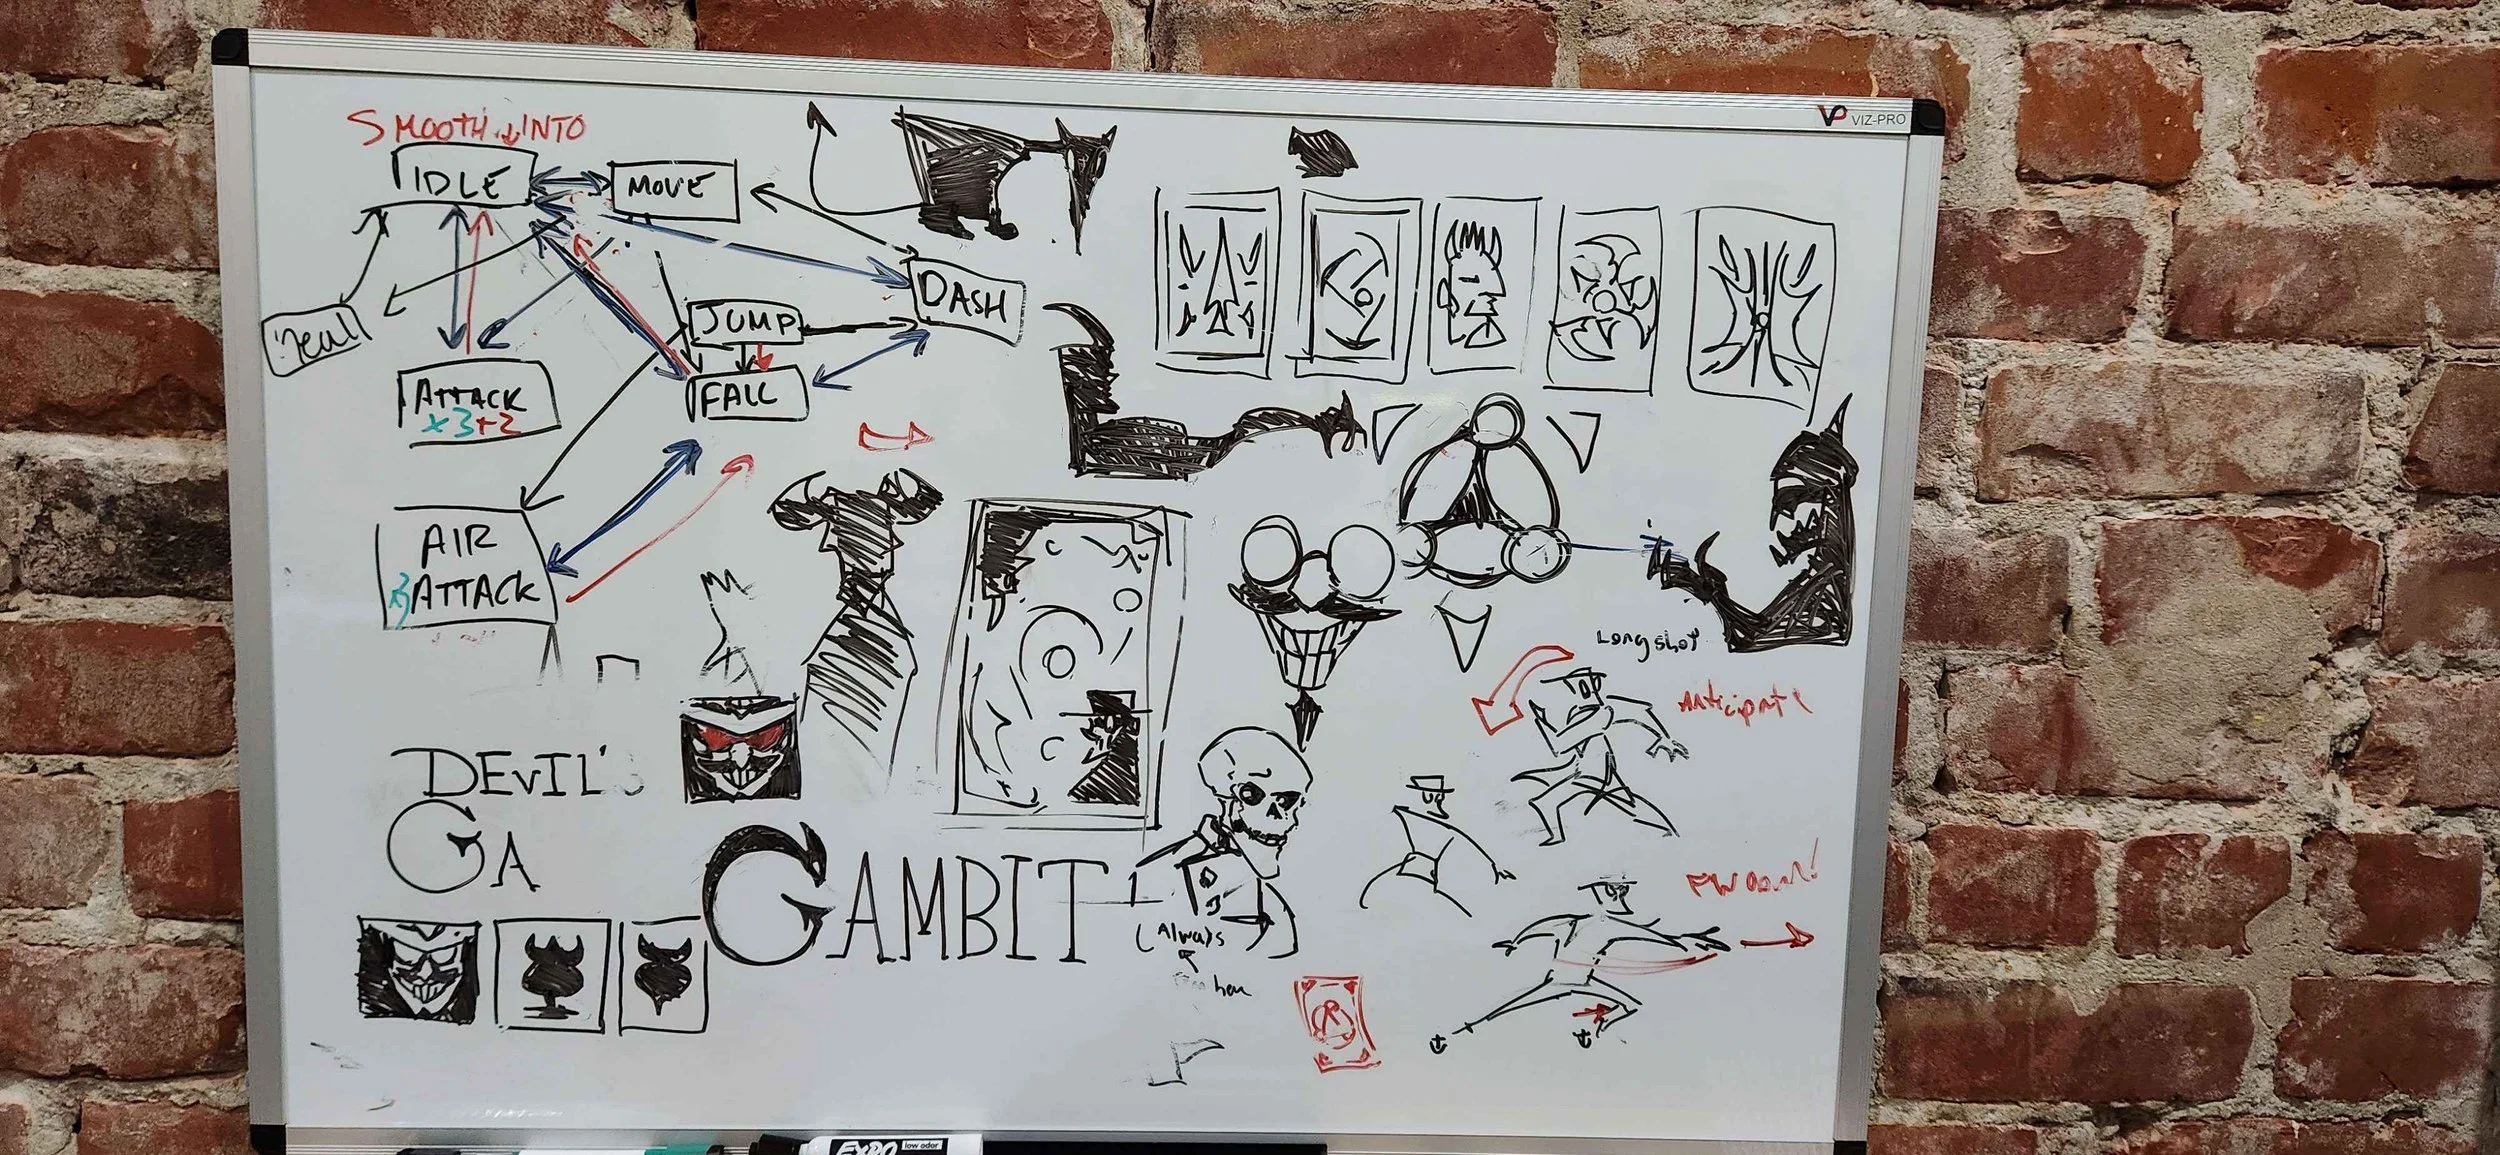 SMOOTH INTO
IDLE
MOVE
DASH
heal
JUMP
ATTACK
x3+2
FALL
AIR
ATTACK
x3
Long shot
Anticipate
DEVIL'S
GA
GAMBIT
(Always
FWOOM!
VP VIZ-PRO
EXPO low odor